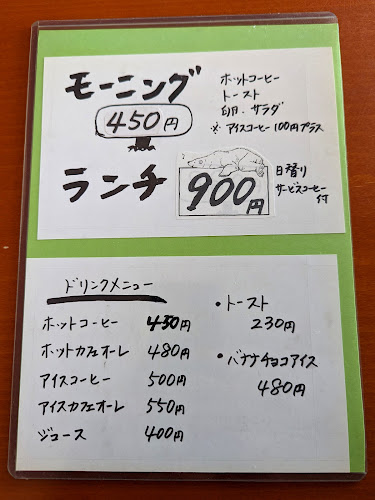 モーニング
450円
ホットコーヒー
トースト
卵・サラダ
※アイスコーヒー100円プラス
ランチ
900円
日替り
サービスコーヒー
付
ドリンクメニュー
ホットコーヒー 450円
ホットカフェオーレ 480円
アイスコーヒー 500円
アイスカフェオーレ 550円
ジュース 400円
・トースト
230円
・バナナチョコアイス
480円